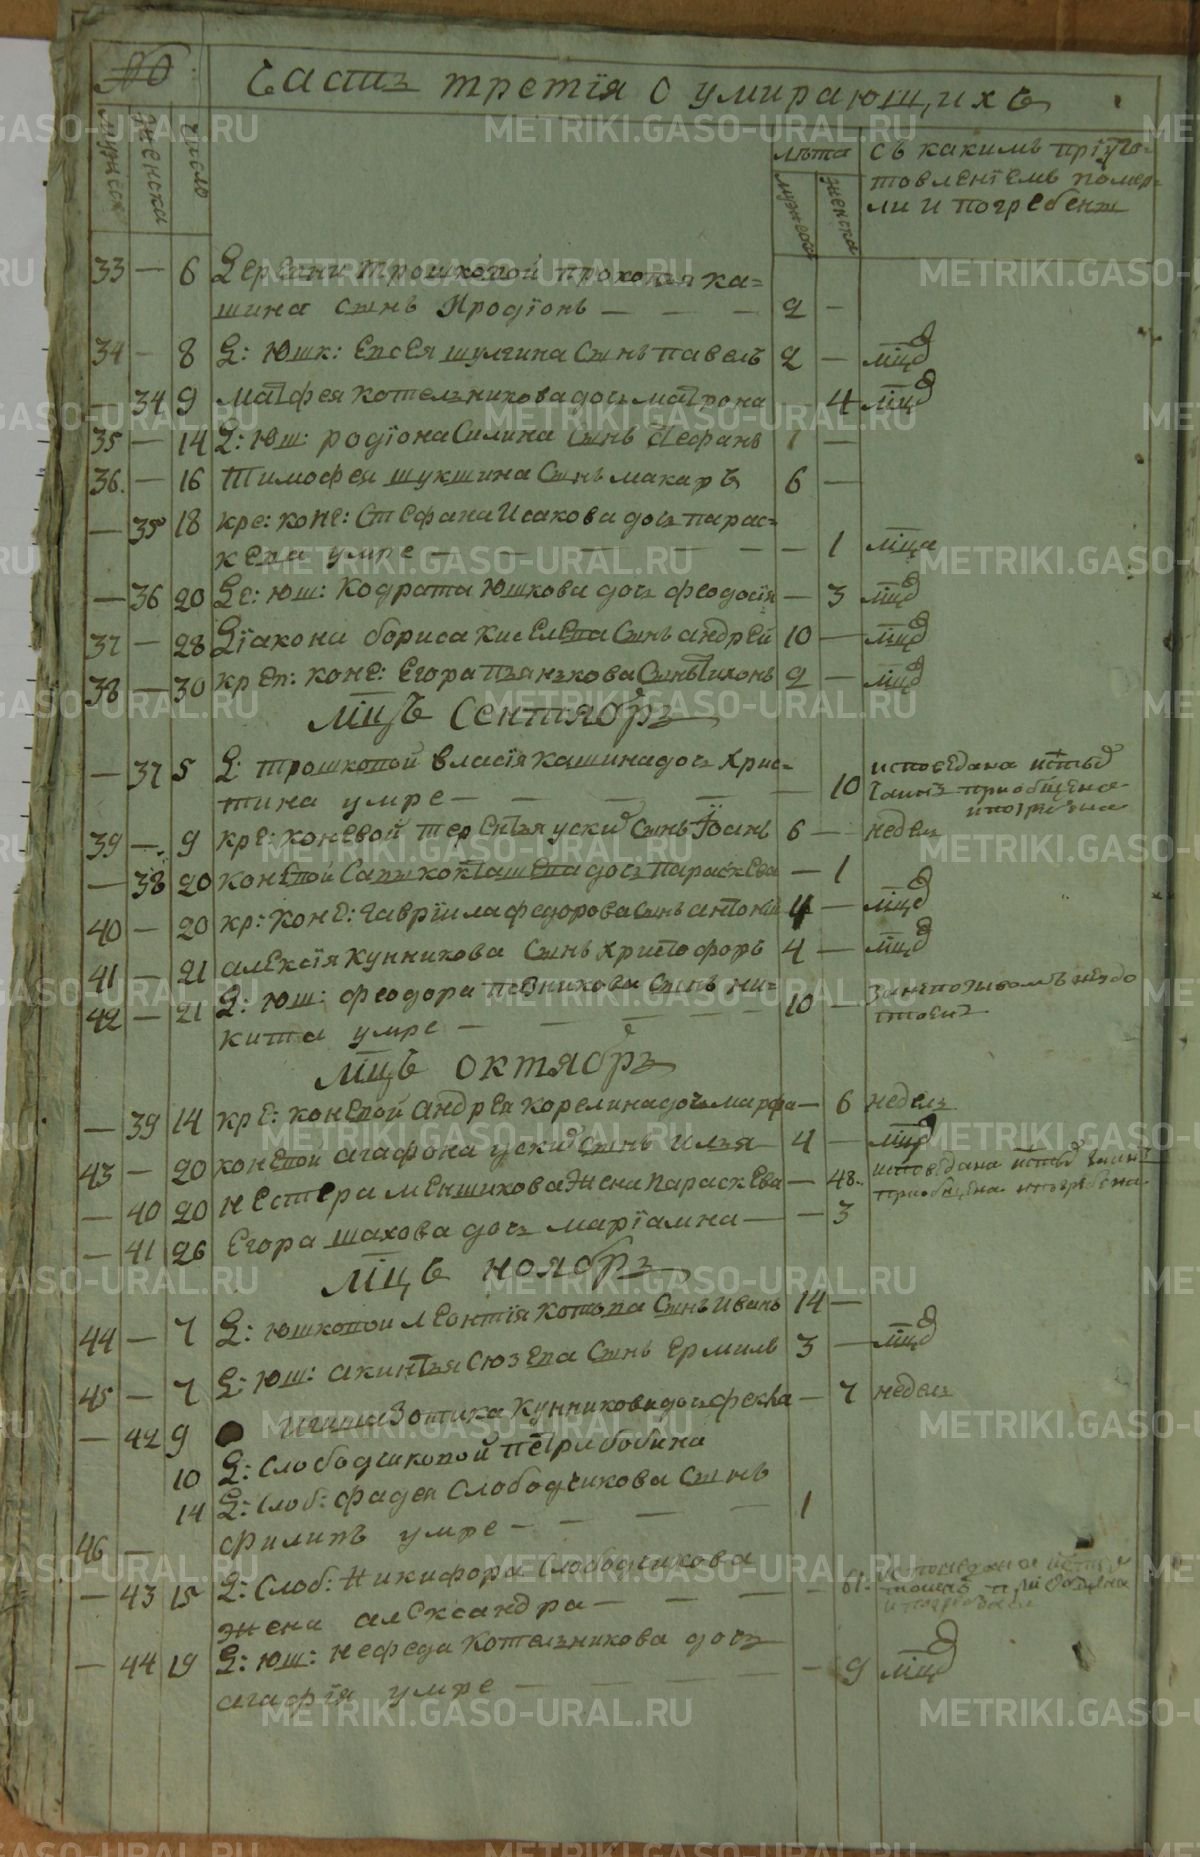 Часть третїя о умирающихъ
мужеск женска число
лѣта съ какимъ прїуго-
товленїемъ помер-
ли и погребены
мужеска женска
33 — 6 Деревни трошковой прокопья ка-
шина сынъ Иродїонъ — — — 2 —
34 — 8 Д: Юшк: Евсея шулгина Сынъ павелъ 2 — мцд
— 34 9 матфея котелникова дочь матрона — 4 мцд
35 — 14 Д: Юш: родїона Силина Сынъ Стефанъ 1 —
36. — 16 Тимофея шукшина Сынъ макаръ 6 —
— 35 18 кре: коне: Стефана Исакова дочь парас-
кева умре — — — — — 1 мца
— 36 20 Де: юш: Кодрата Юшкова дочь феодосїя — 3 мцд
37 — 28 Дїакона бориса киселева Сынъ андрей 10 — мцд
38 — 30 креп: коне: Егора пьянкова Сынъ Тихонъ 2 — мцд
мцъ Сентябрь
— 37 5 Д: трошковой власїя кашина дочь Хрис-
тина умре — — — — — 10 исповѣдана
приобщена
39 — 9 кре: коневой терентья ускид Сынъ Їоанъ 6 — недел
— 38 20 коневой дочь параскева — 1
40 — 20 кр: коне: гаврїила федорова Сынъ антонїй 4 — мцд
41 — 21 алексїя кунникова Сынъ Христофоръ 4 — мцд
42 — 21 Д: юш: феодора певникова Сынъ ни-
кита умре — — — — 10 —
мцъ октябрь
— 39 14 кре: коневой андрея корелина дочь марфа — 6 недель
43 — 20 коневой агафона ускид Сынъ илья 4 — мцд
— 40 20 нестера меншикова жена параскева — 48. исповѣдана
приобщена и погребена
— 41 26 Егора шахова дочь марїамна — — 3
мцъ ноябрь
44 — 7 Д: юшковой леонтїя котова Сынъ иванъ 14 —
45 — 7 Д: Юш: акинтья Сюзева Сынъ Ермилъ 3 — мцд
— 42 9 Зотика Кунникова дочь фекла — 7 недель
10 Д: Слободчиковой петра бобина
14 Д: Слоб: фадея Слободчикова Сынъ
46 — филипъ умре — — — — 1
— 43 15 Д: Слоб: Никифора Слободчикова
жена александра — — — — 61.
— 44 19 Д: юш: нефеда Котелникова дочь
агафїя умре — — — — — 9 мцд
METRIKI.GASO-URAL.RU